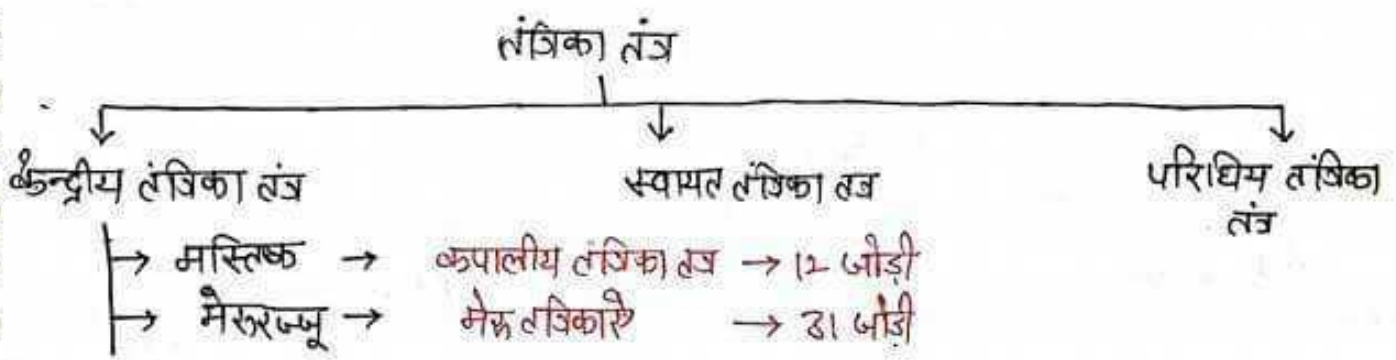 तंत्रिका तंत्र
केन्द्रीय तंत्रिका तंत्र स्वायत तंत्रिका तंत्र परिधिय तंत्रिका
तंत्र
→ मस्तिष्क → कपालीय तंत्रिका तंत्र → 12 जोड़ी
→ मेरुरज्जू → मेरु तंत्रिकाऐ → 31 जोड़ी